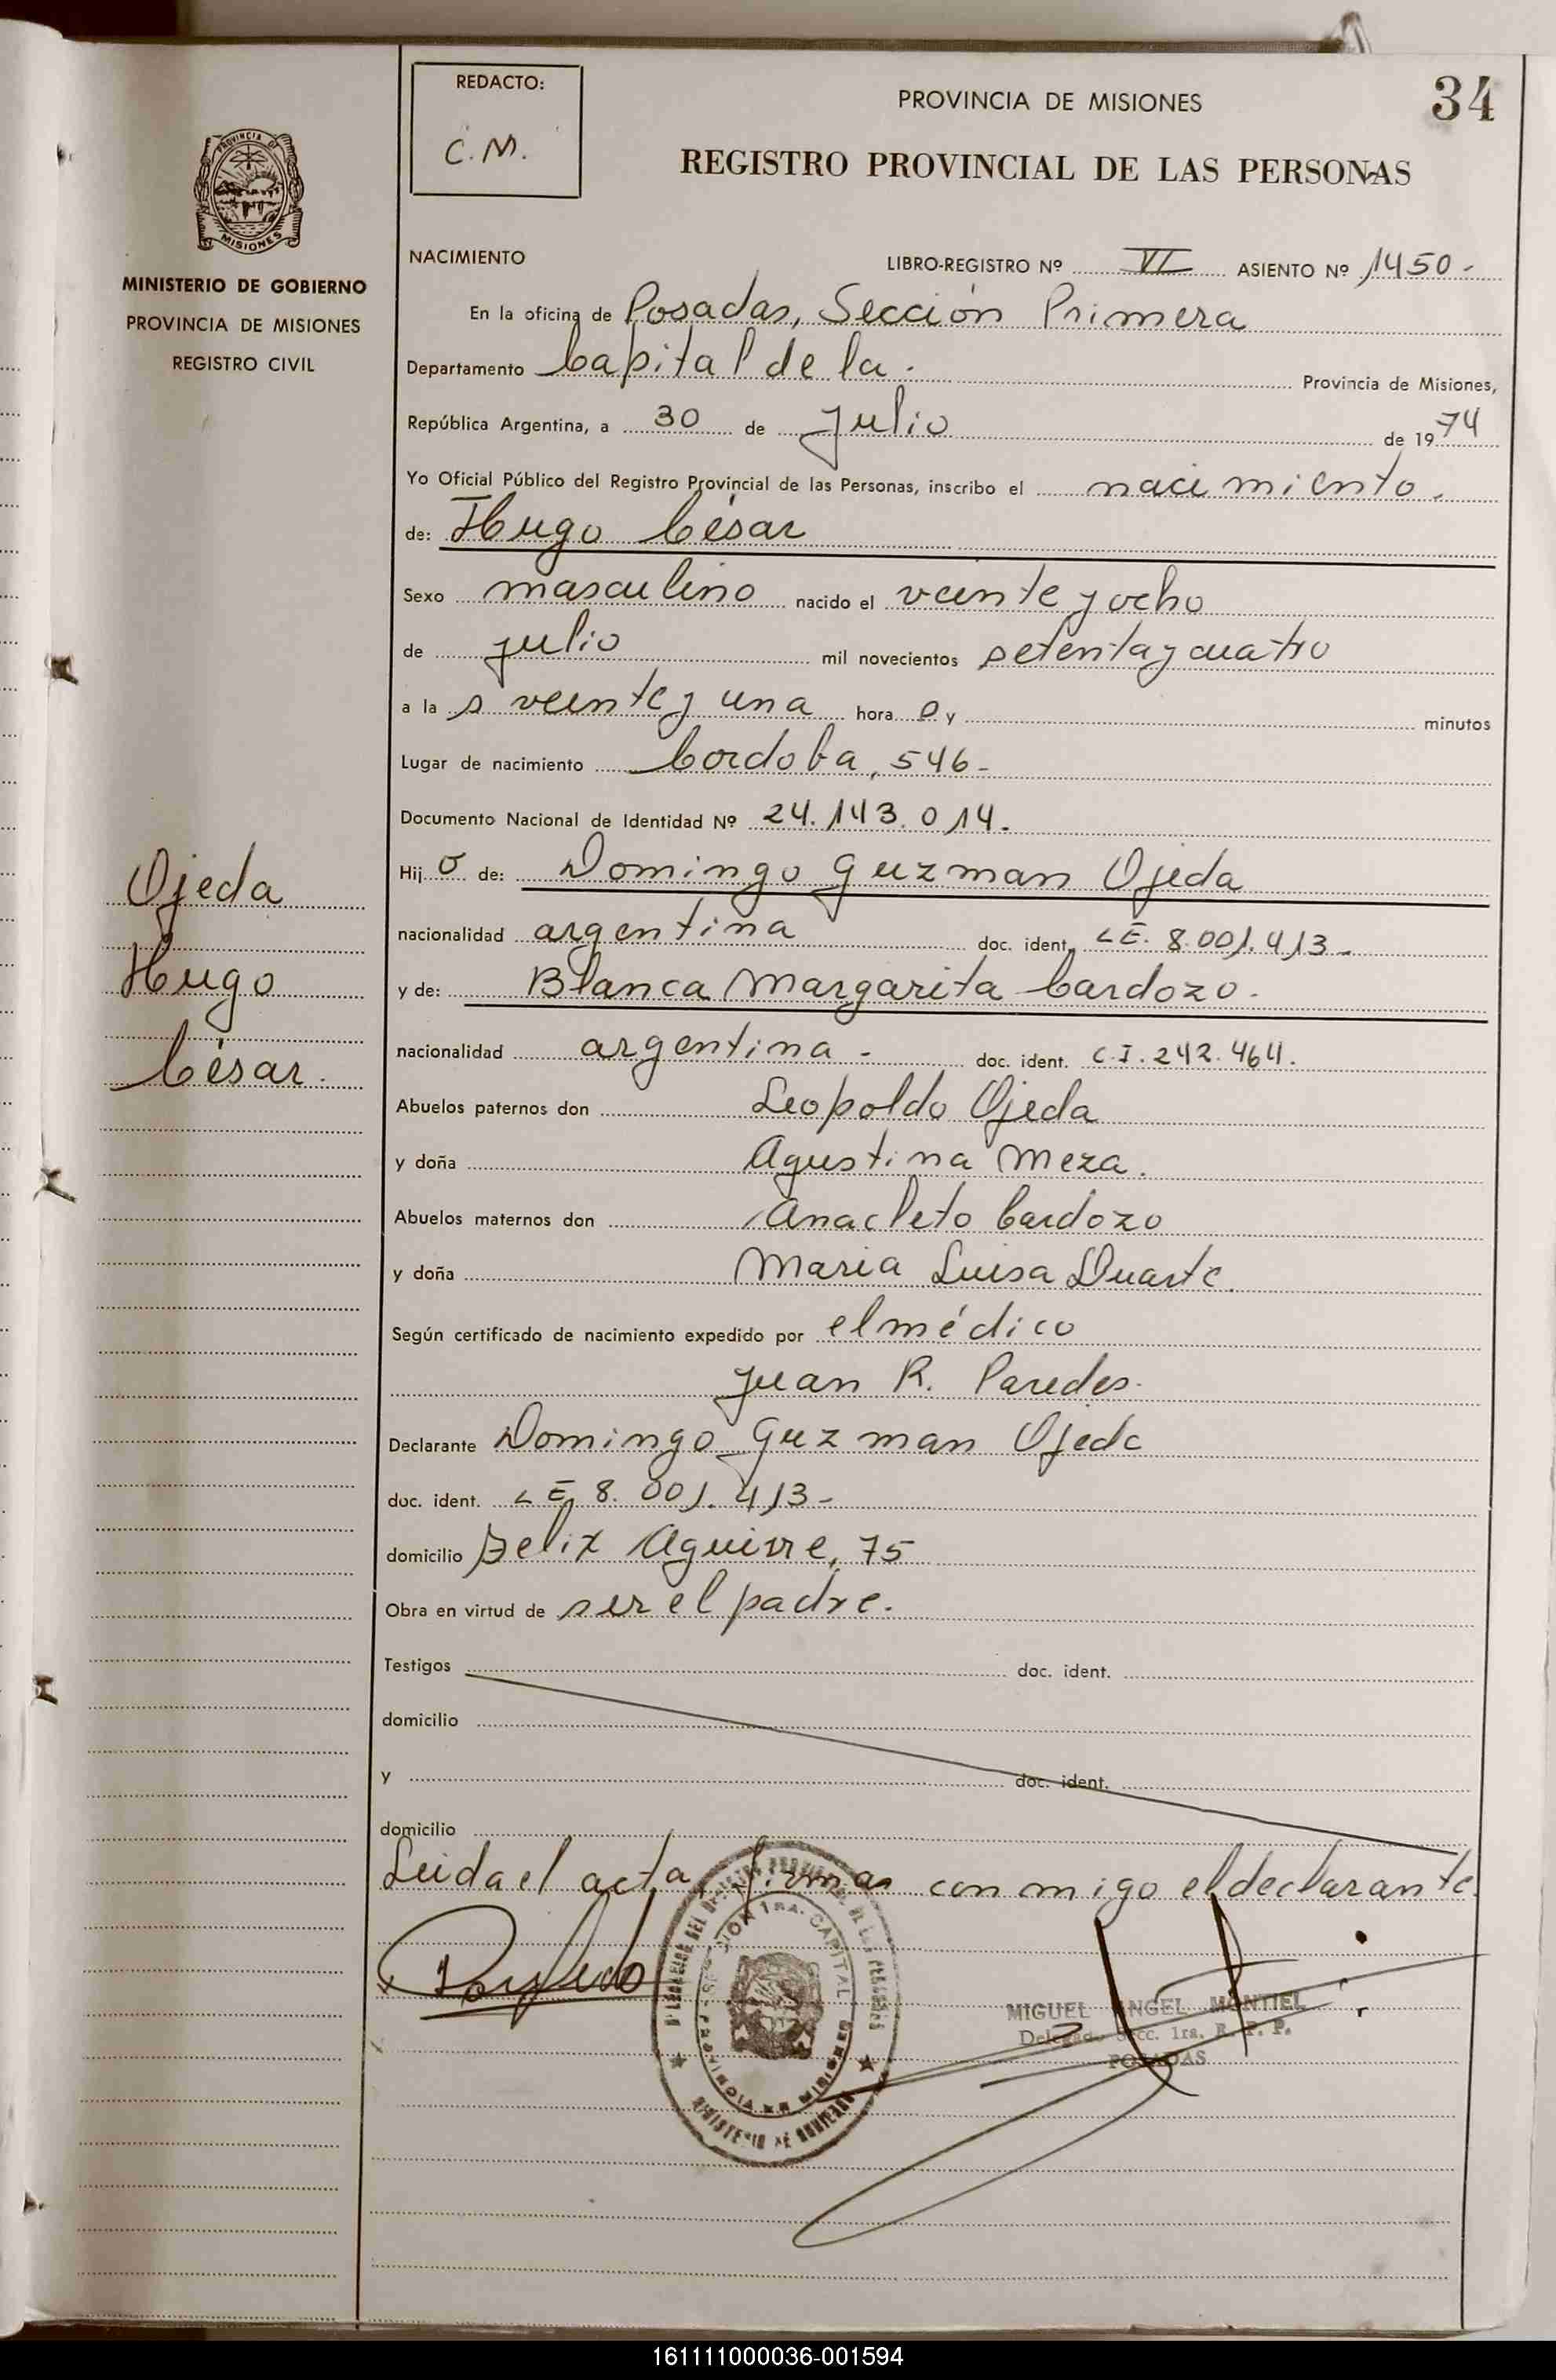 REDACTO:
C.M.
PROVINCIA DE MISIONES
34
REGISTRO PROVINCIAL DE LAS PERSONAS
MINISTERIO DE GOBIERNO
PROVINCIA DE MISIONES
REGISTRO CIVIL
NACIMIENTO
LIBRO-REGISTRO Nº VI ASIENTO Nº 1450-
En la oficina de Posadas, Sección Primera
Departamento Capital de la. Provincia de Misiones,
República Argentina, a 30 de Julio de 1974
Yo Oficial Público del Registro Provincial de las Personas, inscribo el nacimiento.
de: Hugo César
Sexo masculino nacido el veinte y ocho
de julio mil novecientos setenta y cuatro
a la s veinte y una hora s y minutos
Lugar de nacimiento Cordoba, 546-
Documento Nacional de Identidad Nº 24.143.014.
Hij o de: Domingo Guzman Ojeda
nacionalidad argentina doc. ident. LE. 8.001.413-
y de: Blanca Margarita Cardozo.
nacionalidad argentina - doc. ident. C.I. 242.464.
Abuelos paternos don Leopoldo Ojeda
y doña Agustina Meza.
Abuelos maternos don Anacleto Cardozo
y doña Maria Luisa Duarte.
Según certificado de nacimiento expedido por el médico
Juan R. Paredes.
Declarante Domingo Guzman Ojeda
doc. ident. LE 8.001.413-
domicilio Felix Aguirre, 75
Obra en virtud de ser el padre.
Testigos doc. ident.
domicilio
y doc. ident.
domicilio
Leida el acta, firman conmigo el declarante
Ojeda
Hugo
César.
SECCION 1RA. CAPITAL
PROVINCIA DE MISIONES
MINISTERIO DE GOBIERNO
MIGUEL ANGEL MONTIEL
Delegado Secc. 1ra. R. P. P.
POSADAS
161111000036-001594